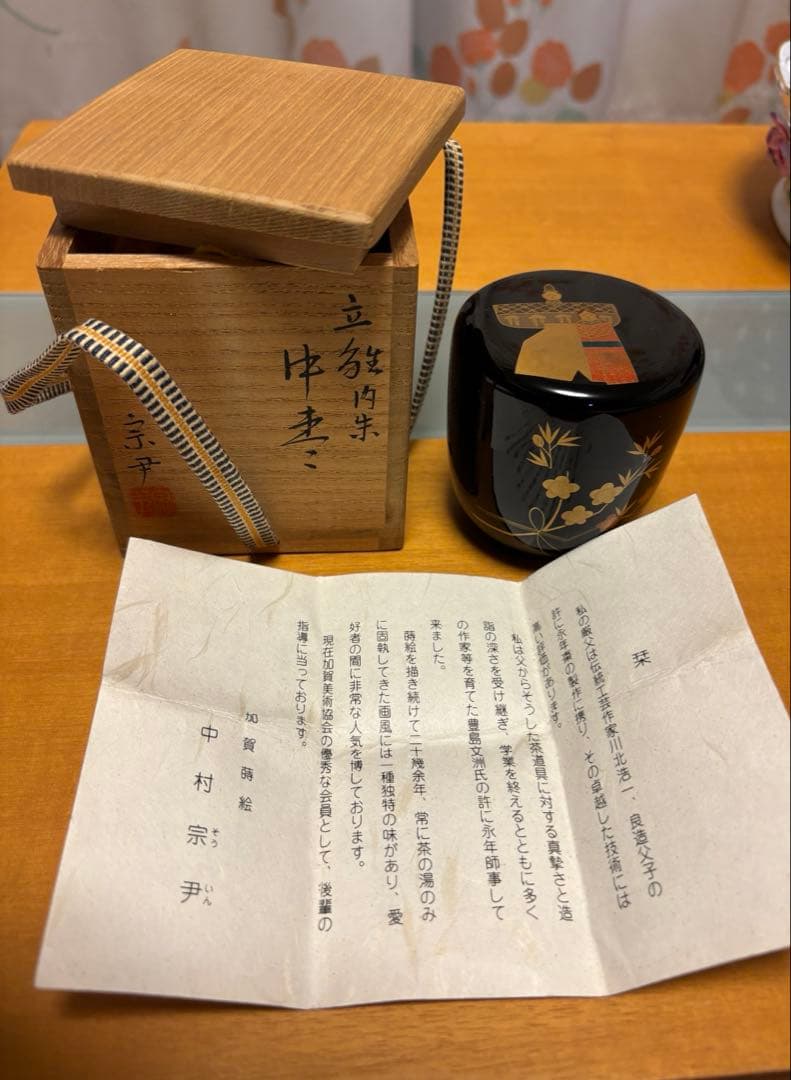 立雛内朱
中棗
宗尹
栞
私の厳父は伝統工芸作家川北浩一、良造父子の
許に永年棗の製作に携り、その卓越した技術には
高い評価があります。
私は父からそうした茶道具に対する真摯さと造
詣の深さを受け継ぎ、学業を終えるとともに多く
の作家等を育てた豊島文洲氏の許に永年師事して
来ました。
蒔絵を描き続けて二十幾余年、常に茶の湯のみ
に固執してきた画風には一種独特の味があり、愛
好者の間に非常な人気を博しております。
現在加賀美術協会の優秀な会員として、後輩の
指導に当っております。
加賀蒔絵
中村宗尹
そういん